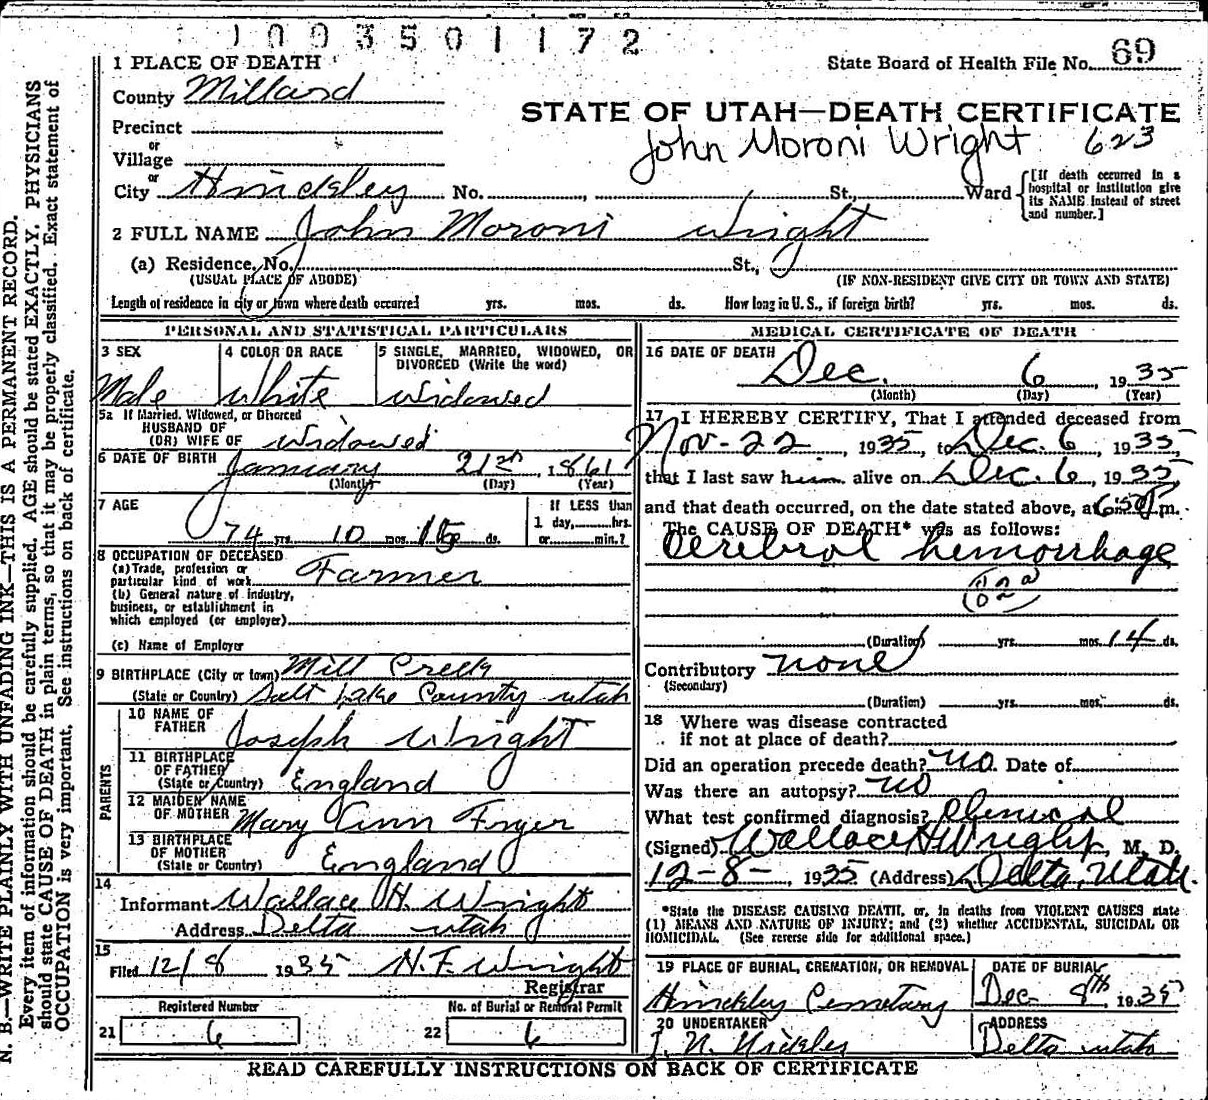 1 0 0 3 5 0 1 1 7 2
1 PLACE OF DEATH
State Board of Health File No. 69
County Millard
STATE OF UTAH—DEATH CERTIFICATE
Precinct
John Moroni Wright 623
or
Village
or
City Hinckley No. , St., Ward
[If death occurred in a hospital or institution give its NAME instead of street and number.]
2 FULL NAME John Moroni Wright
(a) Residence, No. St.,
(USUAL PLACE OF ABODE) (IF NON-RESIDENT GIVE CITY OR TOWN AND STATE)
Length of residence in city or town where death occurred yrs. mos. ds. How long in U. S., if foreign birth? yrs. mos. ds.
PERSONAL AND STATISTICAL PARTICULARS
3 SEX 4 COLOR OR RACE 5 SINGLE, MARRIED, WIDOWED, OR
DIVORCED (Write the word)
Male White Widowed
5a If Married, Widowed, or Divorced
HUSBAND OF
(OR) WIFE OF Widowed
6 DATE OF BIRTH January 21st, 1861
(Month) (Day) (Year)
7 AGE If LESS than
1 day, hrs.
74 yrs. 10 mos. 15 ds. or min.?
8 OCCUPATION OF DECEASED
(a) Trade, profession or
particular kind of work Farmer
(b) General nature of industry,
business, or establishment in
which employed (or employer)
(c) Name of Employer
9 BIRTHPLACE (City or town) Mill Creek
(State or Country) Salt Lake County Utah
PARENTS
10 NAME OF
FATHER Joseph Wright
11 BIRTHPLACE
OF FATHER
(State or Country) England
12 MAIDEN NAME
OF MOTHER Mary Ann Fryer
13 BIRTHPLACE
OF MOTHER
(State or Country) England
14
Informant Wallace H. Wright
Address Delta Utah
15
Filed 12/8 1935 N. F. Wright
Registrar
Registered Number No. of Burial or Removal Permit
21 6 22 6
MEDICAL CERTIFICATE OF DEATH
16 DATE OF DEATH
Dec. 6, 1935
(Month) (Day) (Year)
17 I HEREBY CERTIFY, That I attended deceased from
Nov-22, 1935, to Dec. 6, 1935,
that I last saw him alive on Dec. 6, 1935
and that death occurred, on the date stated above, at m.
The CAUSE OF DEATH* was as follows:
Cerebral hemorrhage
(Duration) yrs. mos. 14 ds.
Contributory none
(Secondary)
(Duration) yrs. mos. ds.
18 Where was disease contracted
if not at place of death?
Did an operation precede death? no. Date of
Was there an autopsy? no
What test confirmed diagnosis? Clinical
(Signed) Wallace H Wright, M. D.
12-8-, 1935 (Address) Delta, Utah.
*State the DISEASE CAUSING DEATH, or, in deaths from VIOLENT CAUSES state
(1) MEANS AND NATURE OF INJURY; and (2) whether ACCIDENTAL, SUICIDAL OR
HOMICIDAL. (See reverse side for additional space.)
19 PLACE OF BURIAL, CREMATION, OR REMOVAL DATE OF BURIAL
Hinckley Cemetary Dec 8th, 1935
20 UNDERTAKER ADDRESS
Delta Utah
READ CAREFULLY INSTRUCTIONS ON BACK OF CERTIFICATE
N. B.—WRITE PLAINLY WITH UNFADING INK—THIS IS A PERMANENT RECORD.
Every item of information should be carefully supplied. AGE should be stated EXACTLY. PHYSICIANS
should state CAUSE OF DEATH in plain terms, so that it may be properly classified. Exact statement of
OCCUPATION is very important. See instructions on back of certificate.